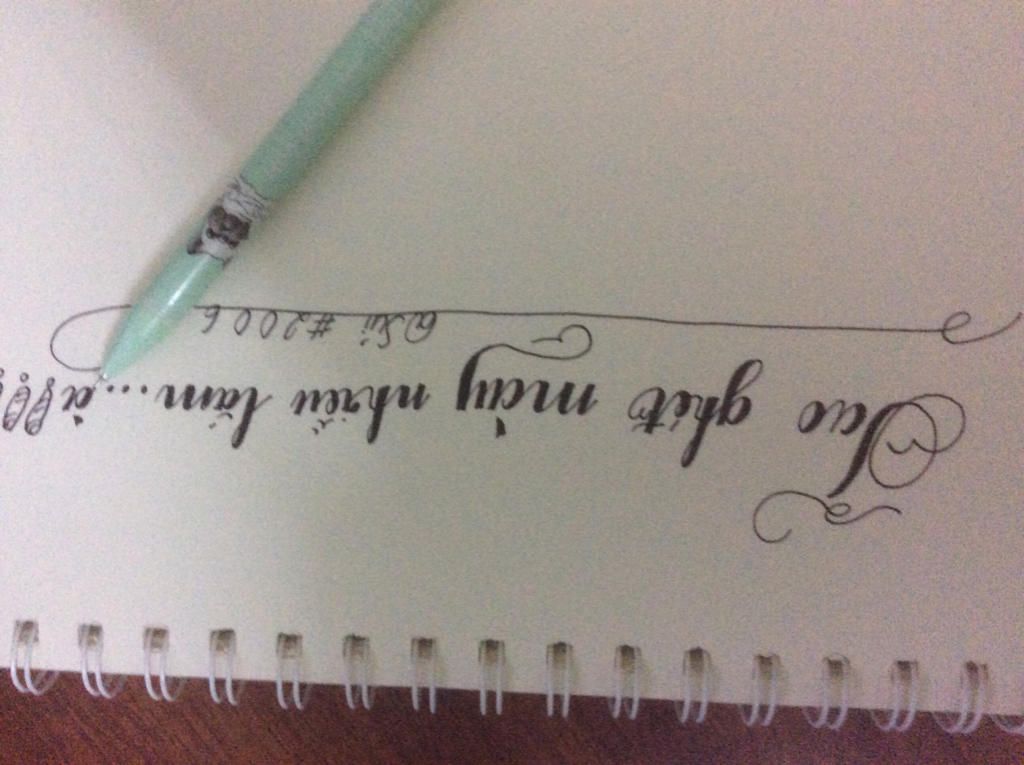 Tao ghét mày nhiều lắm...à!??
@Xii #2006